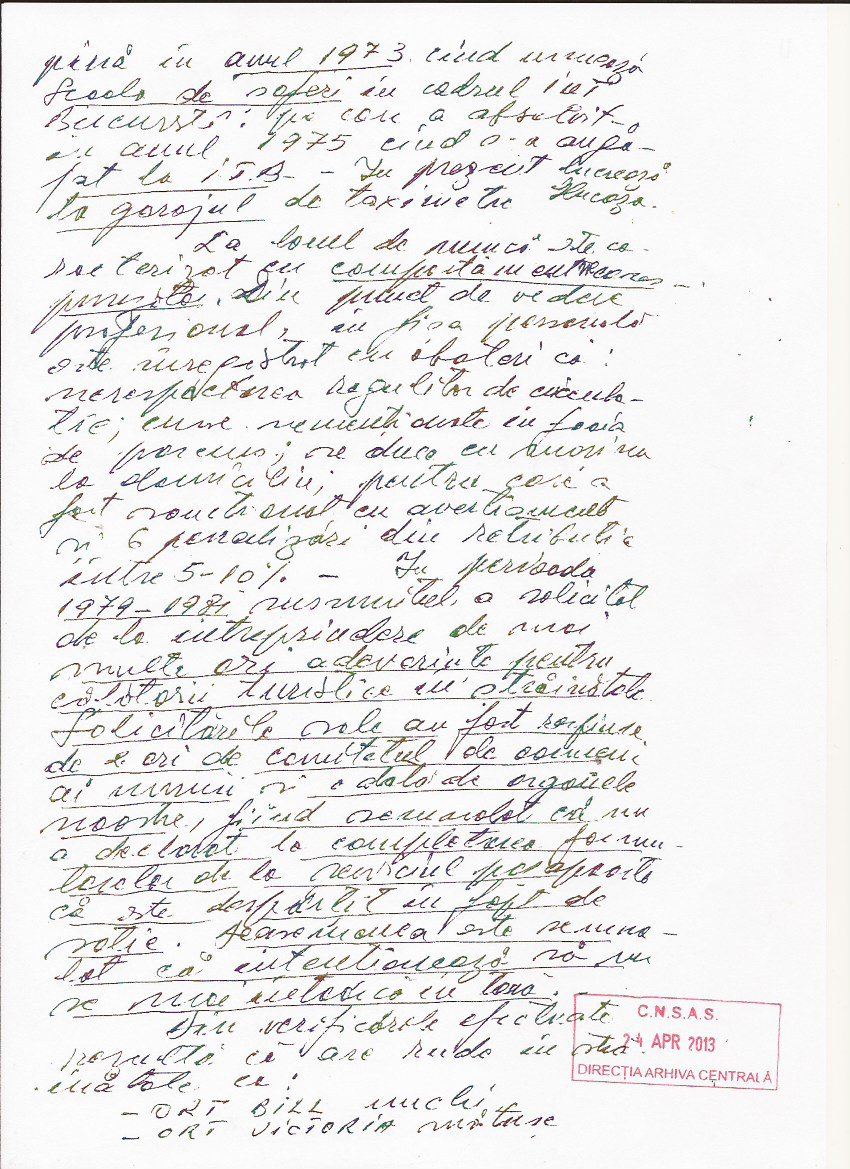 pînă în anul 1973 cînd urmează
Școala de șoferi în cadrul
București; pe care a absolvit-o
în anul 1975 cînd s-a anga-
jat la I.T.B. - În prezent lucrează
la garajul de taximetre
La locul de muncă este ca-
racterizat cu comportament necores-
punzător. Din punct de vedere
profesional, în fișa personală
este înregistrat cu abateri ca:
nerespectarea regulilor de circula-
ție; curse nemenționate în foaia
de parcurs; se duce cu mașina
la domiciliu; pentru care a
fost sancționat cu avertisment
și 6 penalizări din retribuție
între 5-10%. - În perioada
1979-1981 susnumitul a solicitat
de la întreprindere de mai
multe ori adeverințe pentru
călătorii turistice în străinătate.
Solicitările sale au fost respinse
de 2 ori de comitetul de oameni
ai muncii și o dată de organele
noastre, fiind semnalat că nu
a declarat la completarea formu-
larelor de la serviciul pașapoarte
că este despărțit în fapt de
soție. Deasemenea este semna-
lat că intenționează să nu
se mai întoarcă în țară. -
Din verificările efectuate
rezultă că are rude în stră-
inătate ca:
- ORT BILL unchi
- ORT VICTORIA mătușe
C.N.S.A.S.
24 APR 2013
DIRECȚIA ARHIVA CENTRALĂ